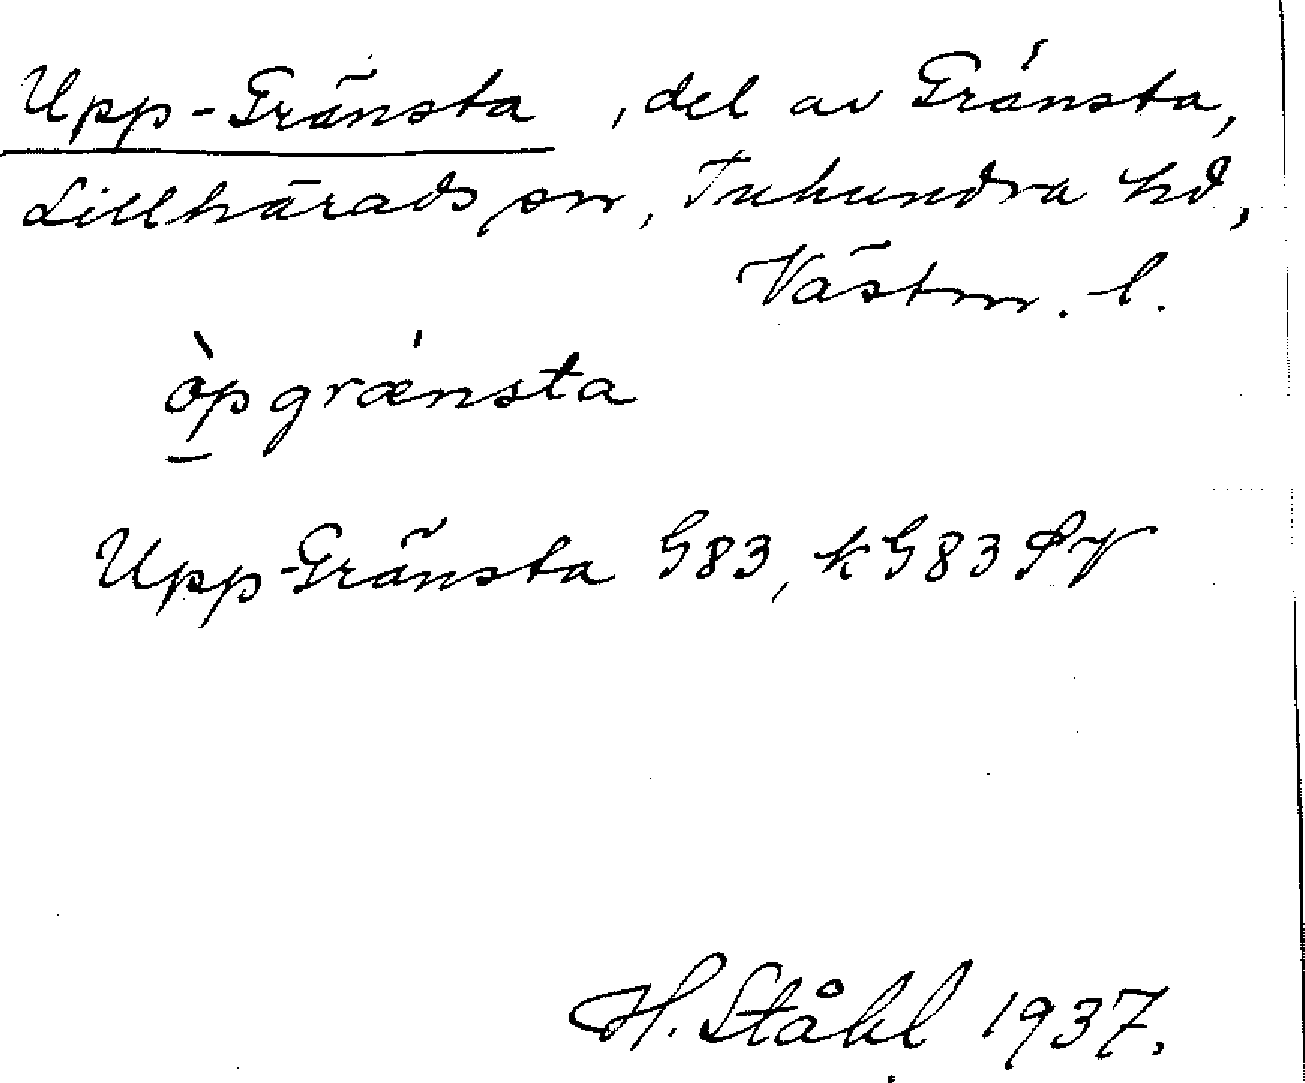 Upp-Gränsta, del av Gränsta,
Lillhärads sn, Tuhundra hd,
Västm. l.
òpgræ̀nsta
Upp-Gränsta G83, k G83 SV
H. Ståhl 1937.